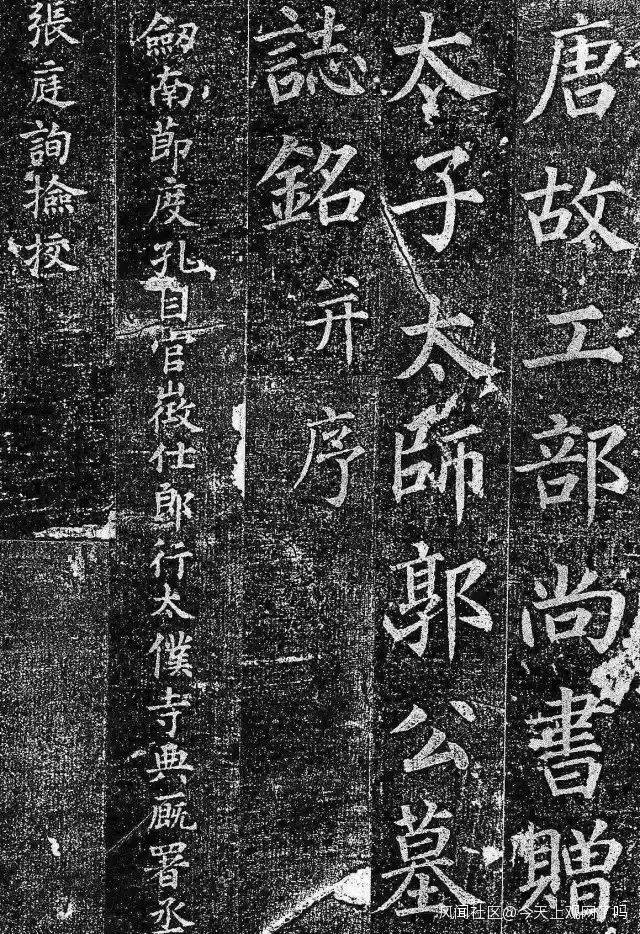 唐故工部尚書贈
太子太師郭公墓
誌銘并序
劔南節度孔目官徵仕郎行太僕寺典厩署丞
張庭詢撿挍
风闻社区@今天上观网了吗